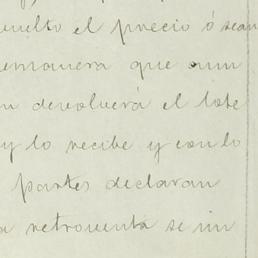 vuelto el precio ó sean
demanera que aun
devolverá el lote
y lo recibe y con lo
partes declaran
retroventa se